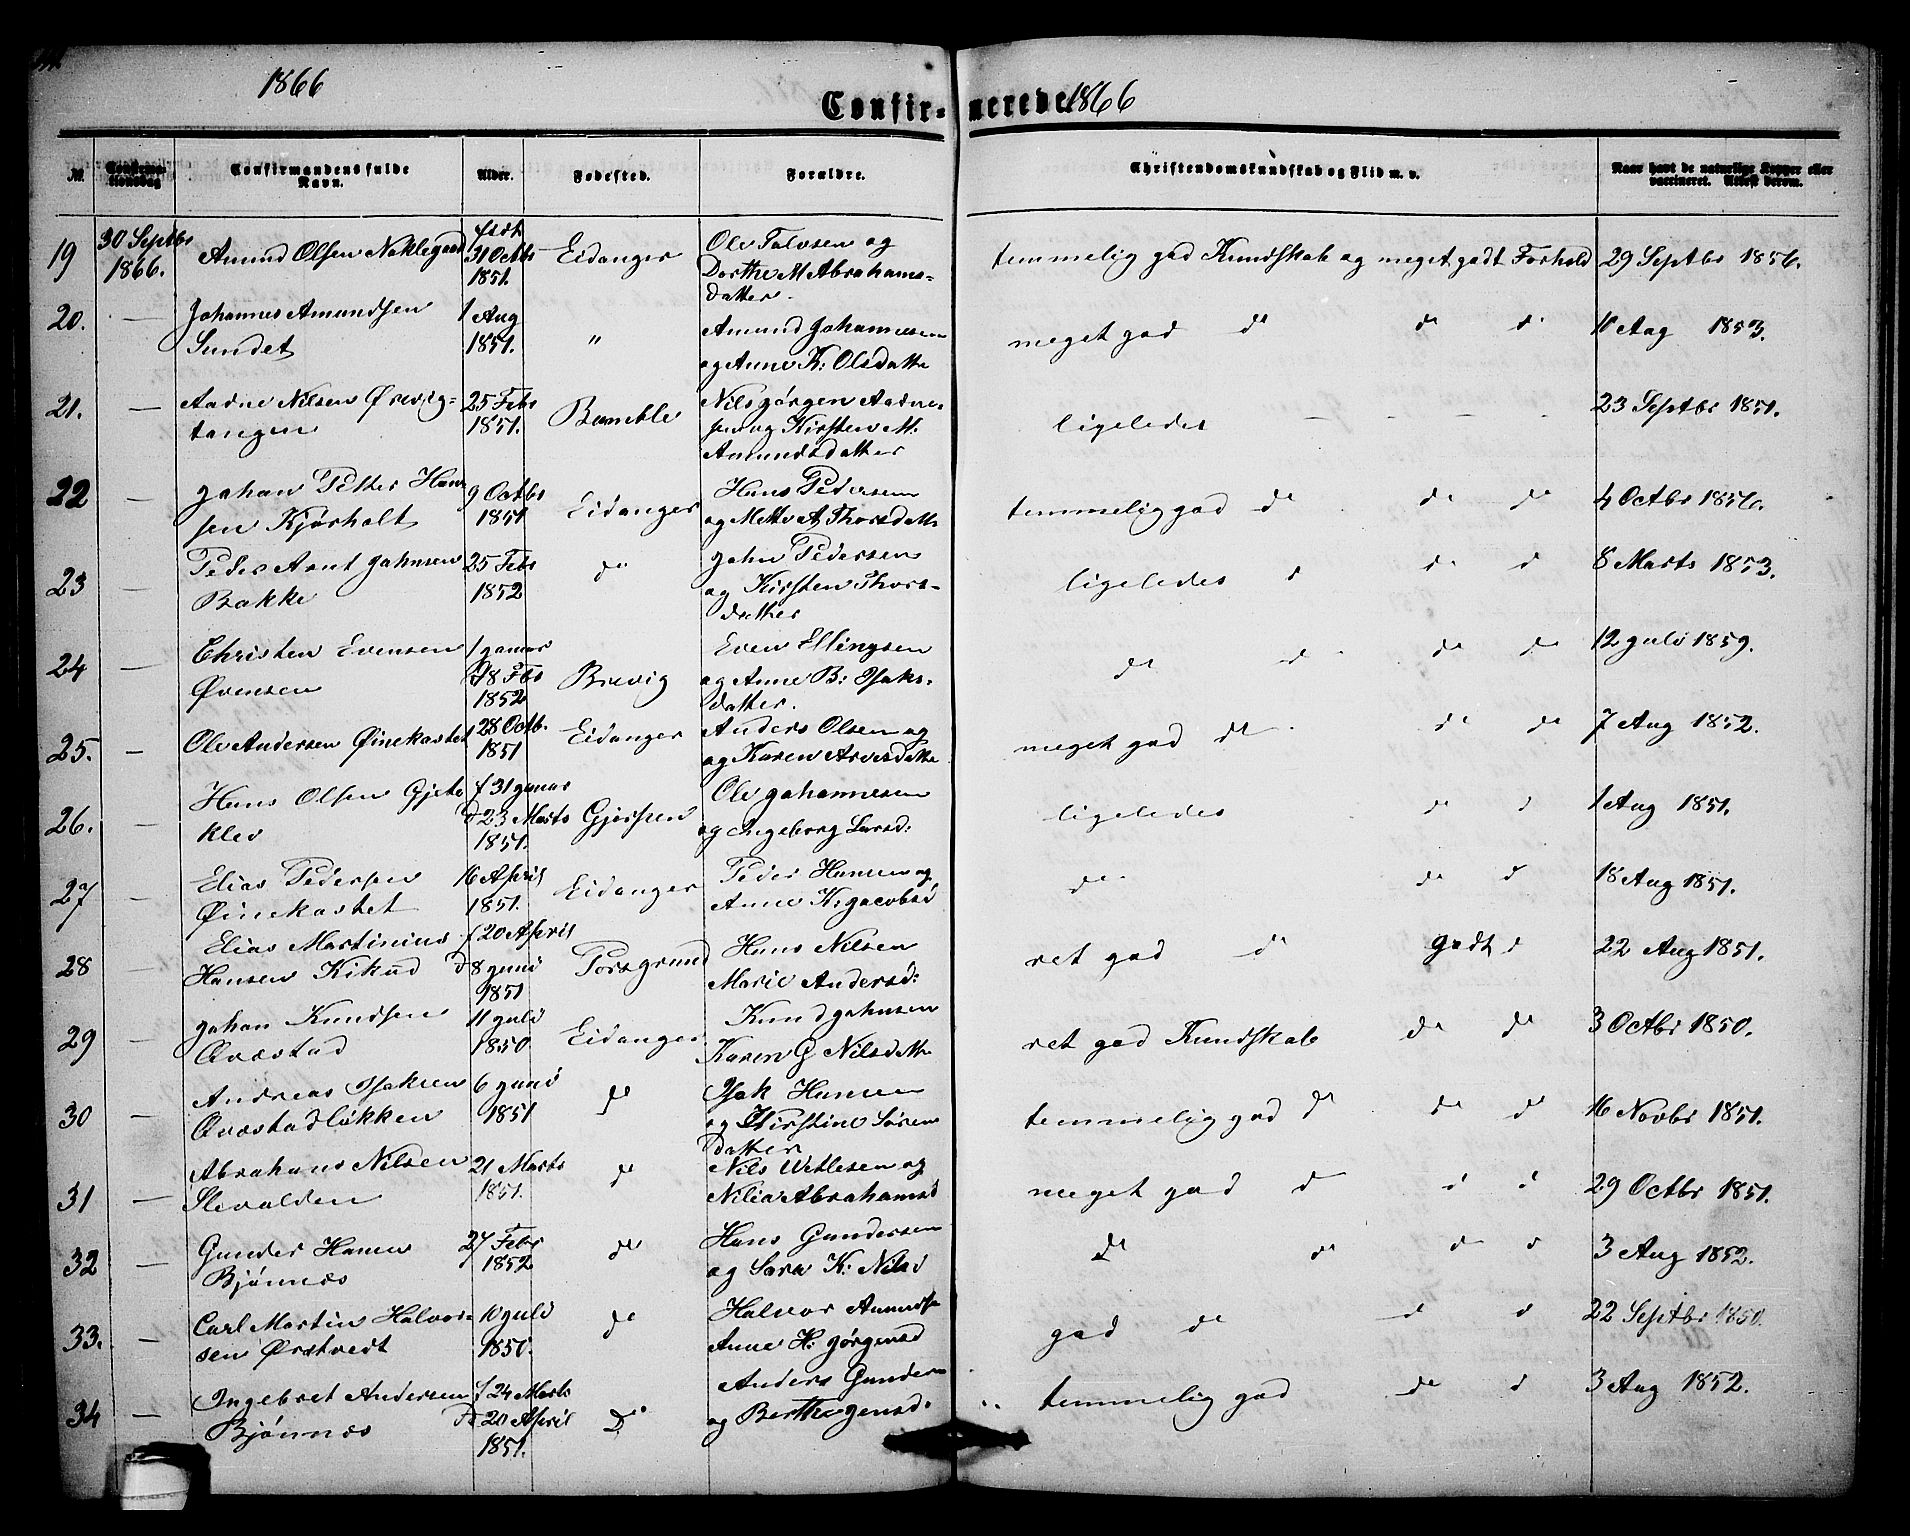 1866
Confir- merede 1866
№. Confirma-tionsdag Confirmandens fulde Navn. Alder. Fødested. Forældre. Christendomskundskab og Flid m. v. Naar havt de naturlige Kopper eller vaccineret. Attest derom.
19 30 Septbr 1866. Amund Olsen Naklegaard født 31 Octbr 1851. Eidanger Ole Talvsen og Dorthe M Abrahams-datter. temmelig god Kundskab og meget godt Forhold 29 Septbr 1856.
20. — Johannes Amundsen Sundet 1 Aug 1851. " Amund Johannesen og Anne K: Olsdatte meget god do do do 10 Aug 1853.
21. — Aadne Nilsen Ørevig-tangen 25 Febr 1851. Bamble Nils Jørgen Aadne-sen og Kirsten M: Amundsdatter ligeledes — — — 23 Septbr 1851.
22 — Johan Petter Han-sen Kjørholt 9 Octbr 1851 Eidanger Hans Pedersen og Mette A Thorsdatt temmelig god do do do 4 Octbr 1856.
23 — Peder Arnt Johnsen Bakke 25 Febr 1852 do John Pedersen og Kirsten Thors-datter ligeledes d do d 8 Marts 1853.
24 — Christen Evensen Øvensen 1 Januar D 8 Febr 1852 Brevig Even Ellingsen og Anne B: Isaks-datter. do d do do 12 Juli 1859.
25. — Ole Andersen Øinekastet 28 Octb. 1851 Eidanger Anders Olsen og og Karen Arvesdatte meget god do do do 7 Aug 1852.
26. — Hans Olsen Gjete klev f 31 Januar D 23 Marts 1851. Gjerpen Ole Johannesen og Ingeborg Larsd: ligeledes do d 1 Aug 1851.
27 — Elias Pedersen Øinekastet 16 April 1851. Eidanger Peder Hansen og Anne K: Jacobsd do do d 18 Aug 1851.
28 — Elias Martinius Hansen Kikud f 20 April D 8 Juni 1851 Porsgrund Hans Nilsen Marie Andersd: ret god do godt d 22 Aug 1851.
29 — Johan Knudsen Ovrestad 11 Juli 1850 Eidanger Knud Johnsen Karen G Nilsdatte ret god Kundskab do do 3 Octbr 1850.
30 — Andreas Isaksen Ovrestadløkken 6 Juni 1851 do Isak Hansen og Kirstine Søren datter temmelig god do do do 16 Novbr 1851.
31 — Abraham Nilsen Slevolden 21 Marts 1851. do Nils Wetlesen og Nilia Abrahamsd meget god d d d 29 Octbr 1851.
32 — Gunder Hansen Bjønnes 27 Febr 1852 do Hans Gundersen og Sara K: Nilsd do do d d 3 Aug 1852.
33. — Carl Martin Halvor-sen Ørstvedt 10 Juli 1850. do Halvor Amunds Anne H: Jørgensd god do d d 22 Septbr 1850
34 — Ingebret Andersen Bjønnes f 24 Marts D 20 April 1851. do Anders Gunders og Berthe Jensd: temmelig god do d 3 Aug 1852.